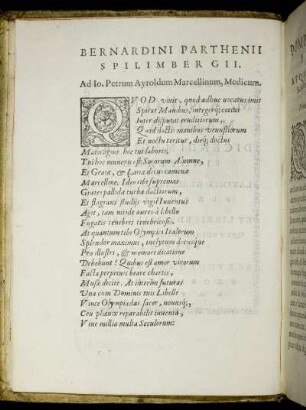 BERNARDINI PARTHENII
SPILIMBERGII,
Ad Io. Petrum Ayroldum Marcellinum, Medicum.
QVOD vivit, quod adhuc
Spirat Manibus,
Inter disputat eruditiorum,
Quòd doctis manibus venustiorum
Et noctu teritur, diéq; doctus
hoc tui laboris,
Tui hoc muneris est: Sacrarum Alumne,
Et Graiæ, & Latiæ decus camœnæ
Marcelline. Ideo tibi supremas
Grates pallida turba doctiorum,
Et flagrans studijs vigil Iuuentus
Agit, tam nitido aureo libello
Fugatis tenebris
At quantum tibi Olympici Italorum
Splendor maximus, inclytum decusque
Pro illustri, & memori dicatione
Debebunt! Quibus est amor virorum
Facta perpetuis beare chartis,
Musæ dicite. At interim futuræ
Vna cum Dominis tuis Libelle
Viue Olympiadas sacer, nouusq́;,
Ceu phœnix reparabilis iuuenta,
Viue millia multa Seculorum.